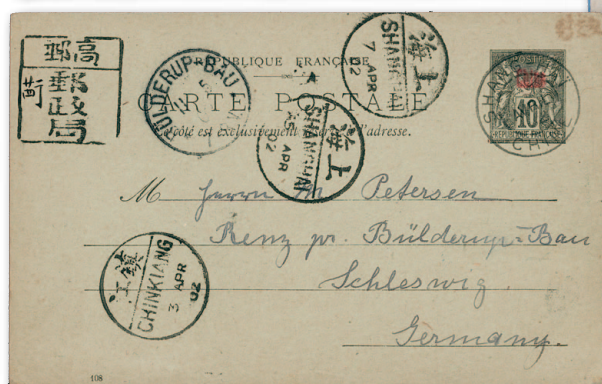 RÉPUBLIQUE FRANÇAISE
CARTE POSTALE
Ce côté est exclusivement réservé à l'adresse.
高郵
郵政局
BÜLDERUP-BAU
上海
SHANGHAI
7 APR
02
上海
SHANGHAI
APR
02
POSTE
10
RÉPUBLIQUE FRANÇAISE
SHANG-HAI
CHINE
M Herrn M Petersen
Renz pr. Bülderup-Bau
Schleswig.
Germany.
鎮江
CHINKIANG
3 APR
02
108